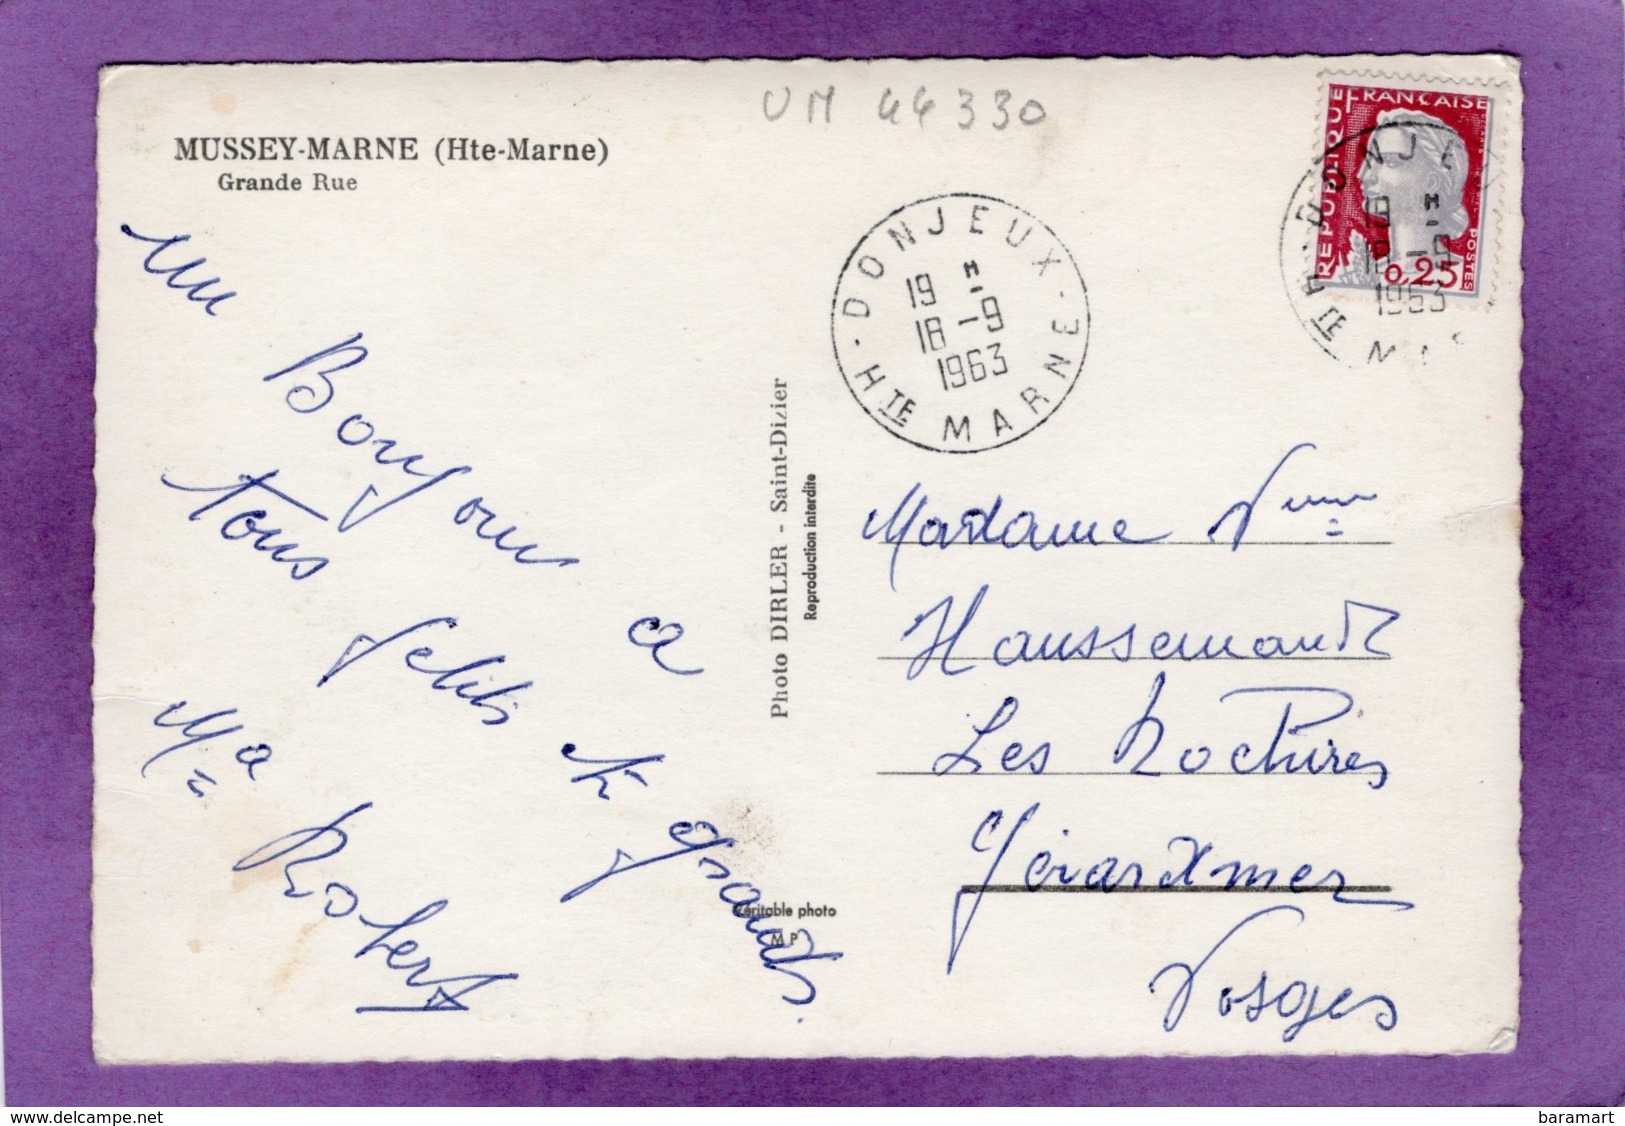 UM 44330
MUSSEY-MARNE (Hte-Marne)
Grande Rue
un Bonjour a
tous petits et grands.
Ma Robert
Photo DIRLER - Saint-Dizier
Reproduction interdite
Véritable photo
M P
DONJEUX
19 H
18 -9
1963
HTE MARNE
RÉPUBLIQUE FRANÇAISE
POSTES
0,25
DONJE
19 H
18 -9
1963
HTE MA
Madame Vve
Haussemand
Les Rochires
Gérardmer
Vosges
delcampe.net
baramart